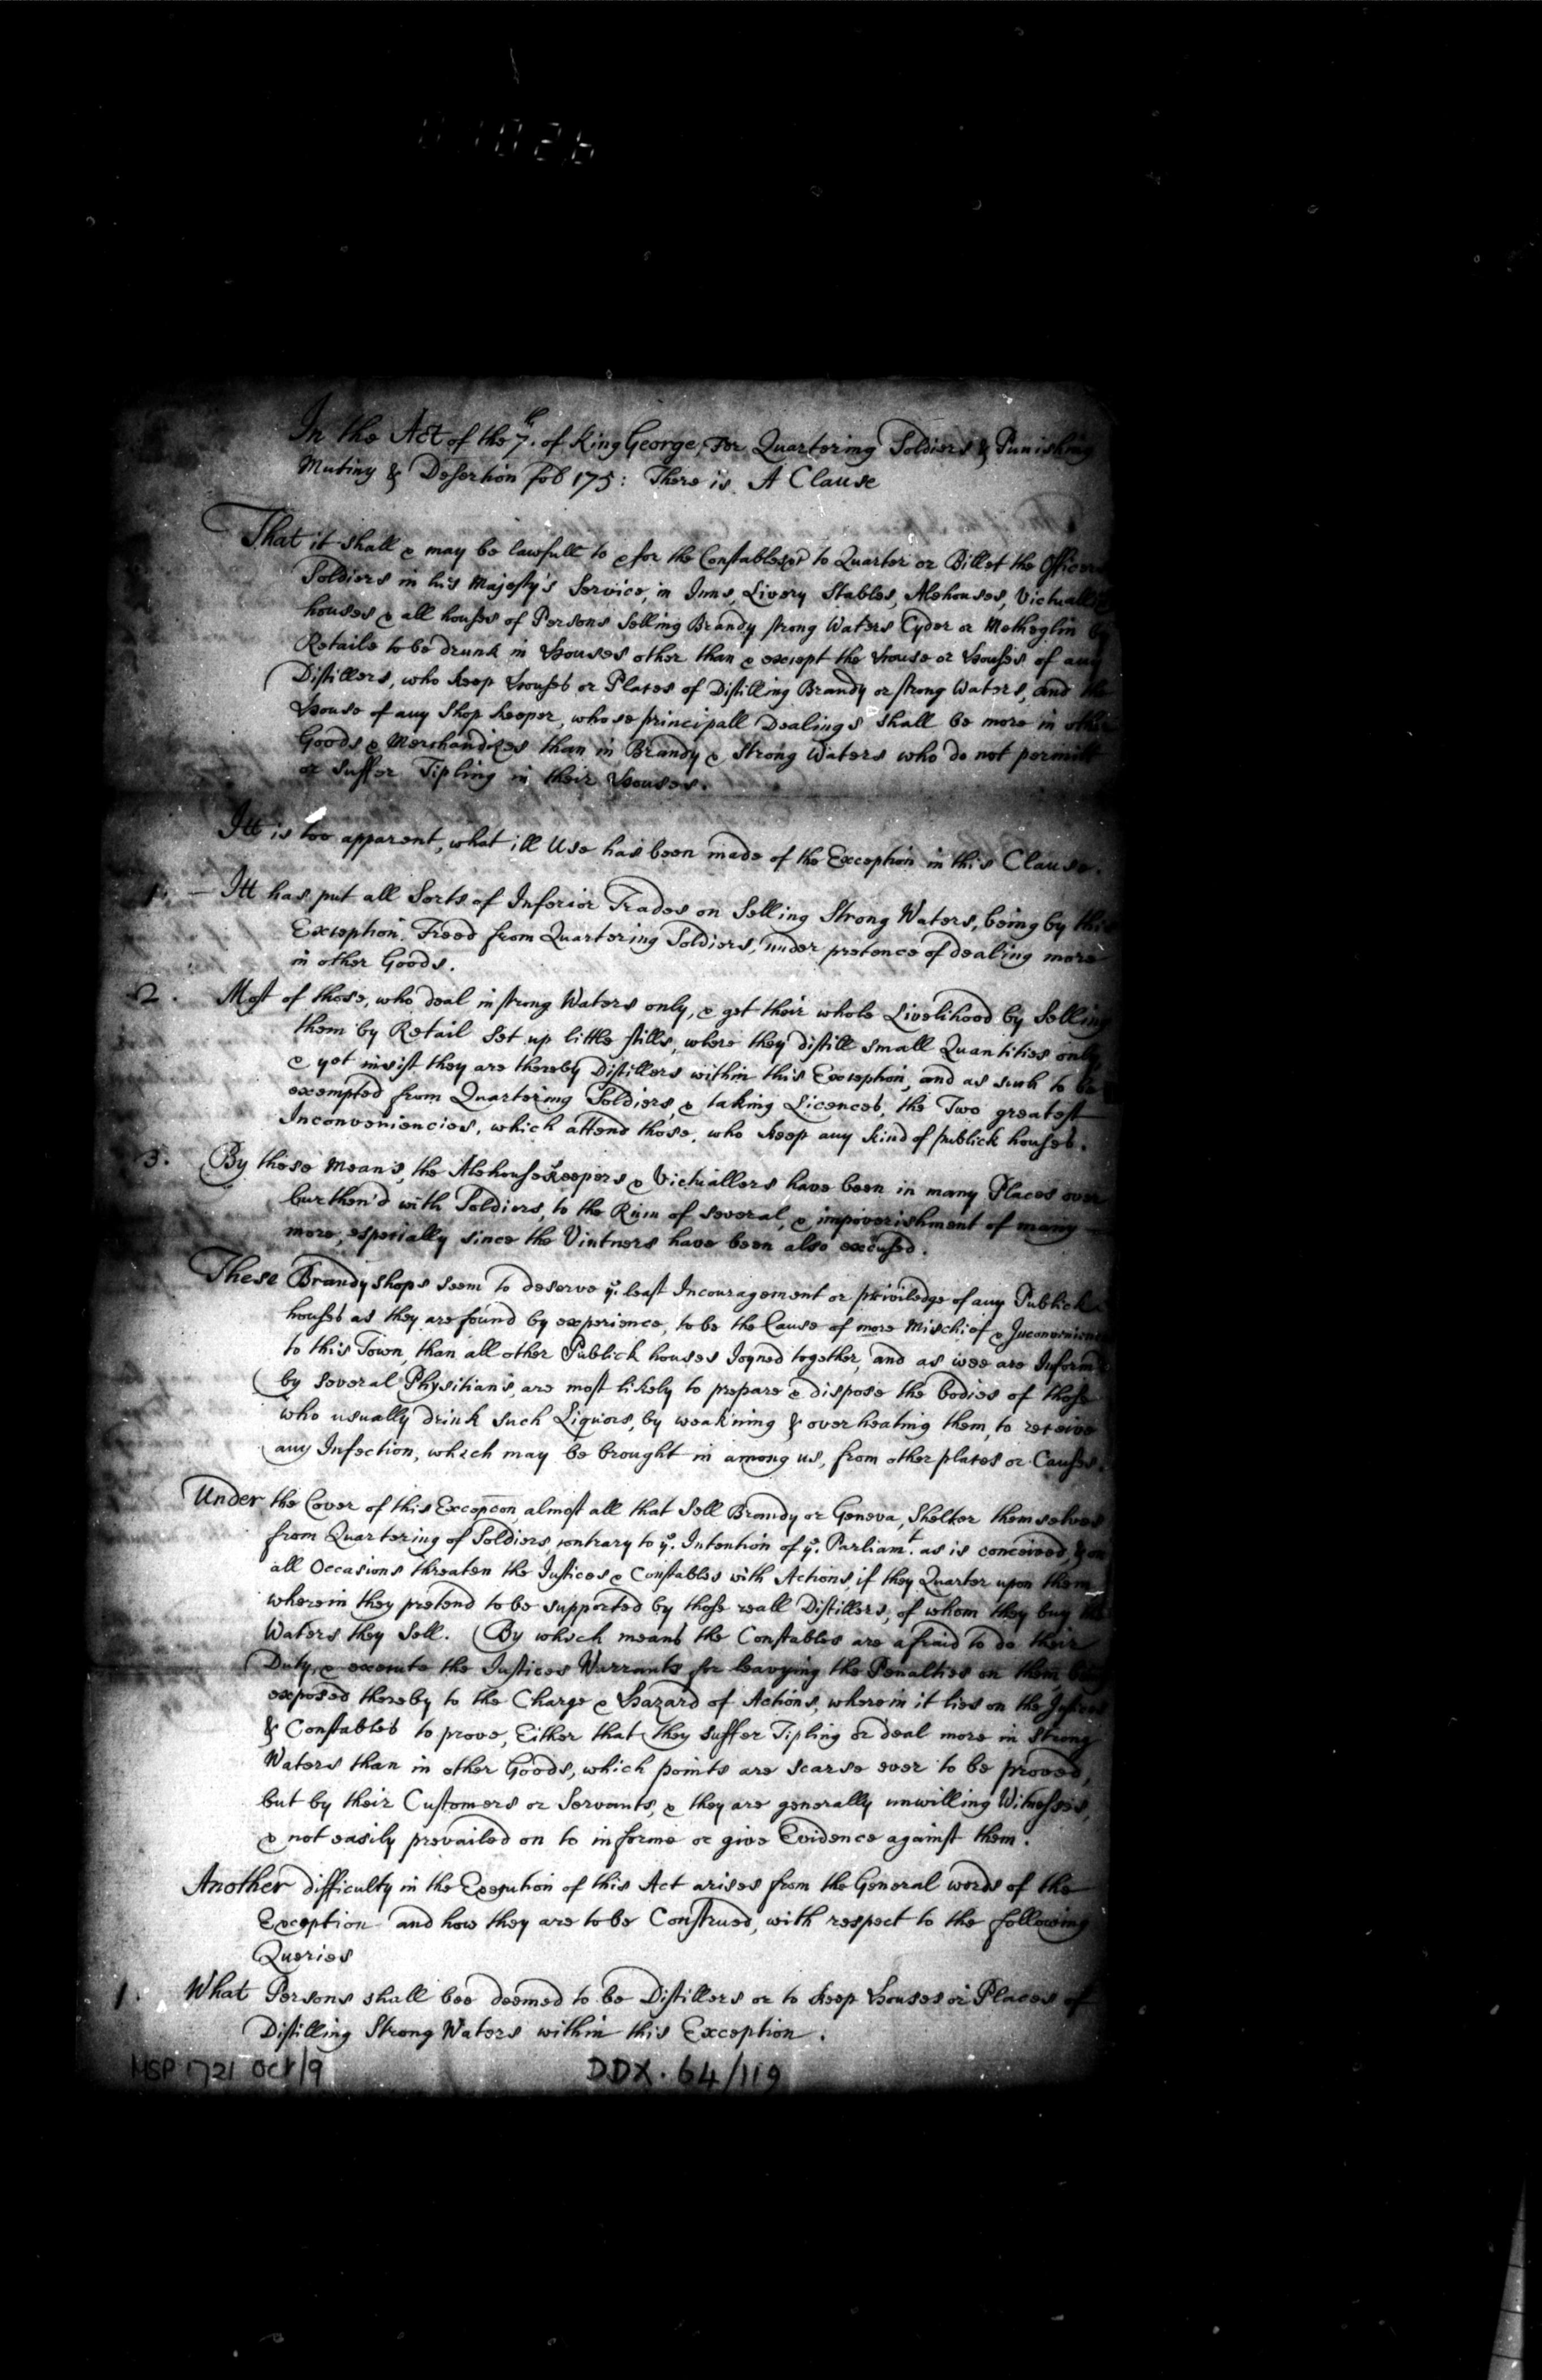 In the Act of the 7th. of King George, For Quartering Soldiers & Punishing
Mutiny & Desertion fol 175: There is A Clause
That it shall & may be lawfull to & for the Constables &c to Quarter or Billet the Officers
Soldiers in his Majesty's Service, in Inns, Livery Stables, Alehouses, Victualling
houses & all houses of Persons Selling Brandy strong Waters Cyder or Metheglin by
Retaile to be drunk in Houses other than & except the House or Houses of any
Distillers, who keep Houses or Places of Distilling Brandy or strong Waters, and the
House of any Shop keeper, whose principall Dealings shall be more in other
Goods & Merchandizes than in Brandy & Strong Waters who do not permitt
or suffer Tipling in their Houses.
Itt is too apparent, what ill Use has been made of the Exception in this Clause.
1. - Itt has put all Sorts of Inferior Trades on Selling Strong Waters, being by this
Exception Freed from Quartering Soldiers, under pretence of dealing more
in other Goods.
2. Most of those, who deal in strong Waters only, & get their whole Livelihood by Selling
them by Retail Set up little stills, where they distill small Quantities only,
& yet insist they are thereby Distillers within this Exception, and as such to be
exempted from Quartering Soldiers, & taking Licences, the Two greatest
Inconveniencies, which attend those, who keep any kind of publick houses.
3. By these Means, the Alehouse Keepers & Victuallers have been in many Places over
burthen'd with Soldiers, to the Ruin of several, & impoverishment of many
more, especially since the Vintners have been also excused.
These Brandy shops seem to deserve ye. least Incouragement or priviledge of any Publick
houses as they are found by experience, to be the Cause of more Mischief & Inconvenience
to this Town, than all other Publick houses Joyned together, and as wee are Inform'd
by several Physitians, are most likely to prepare & dispose the bodies of those
who usually drink such Liquors, by weakning & over heating them, to receive
any Infection, which may be brought in among us, from other places or Causes.
Under the Cover of this Excepcon, almost all that Sell Brandy or Geneva, Shelter themselves
from Quartering of Soldiers, contrary to ye. Intention of ye. Parliamt. as is conceived, & on
all Occasions threaten the Justices & Constables with Actions, if they Quarter upon them
wherein they pretend to be supported by those reall Distillers, of whom they buy the
Waters they Sell. By which means the Constables are afraid to do their
Duty, & execute the Justices Warrants for leavying the Penalties on them, being
exposed thereby to the Charge & Hazard of Actions, wherein it lies on the Justices
& Constables to prove, Either that they suffer Tipling or deal more in Strong
Waters than in other Goods, which points are scarse ever to be proved,
but by their Customers or Servants, & they are generally unwilling Witnesses,
& not easily prevailed on to informe or give Evidence against them.
Another difficulty in the Execution of this Act arises from the General words of the
Exception and how they are to be Construed, with respect to the following
Queries
1. What Persons shall bee deemed to be Distillers or to keep Houses or Places of
Distilling Strong Waters within this Exception.
MSP 1721 Oct/9 DDX. 64/119